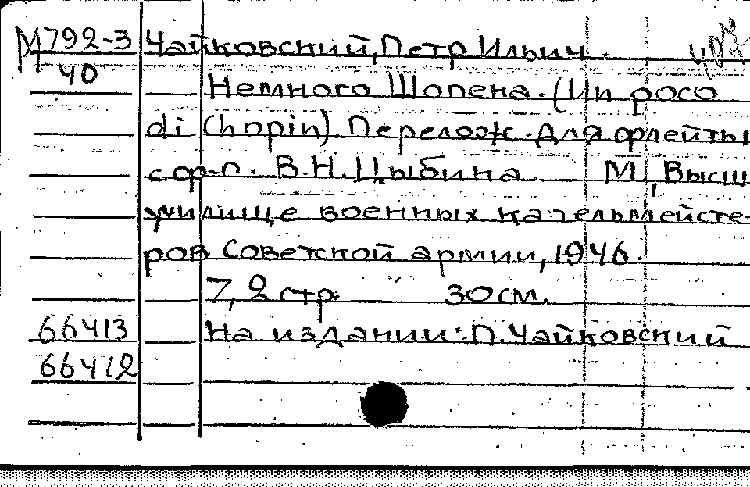 М792-3 Чайковский, Петр Ильич.
40 Немного Шопена. (Un poco
di Chopin). Перелож. для флейты
с ф-п. В.Н.Цыбина М., Высш
училище военных капельмейсте-
ров Советской армии, 1946.
7, 2 стр. 30 см.
66413 На издании: П. Чайковский
66412